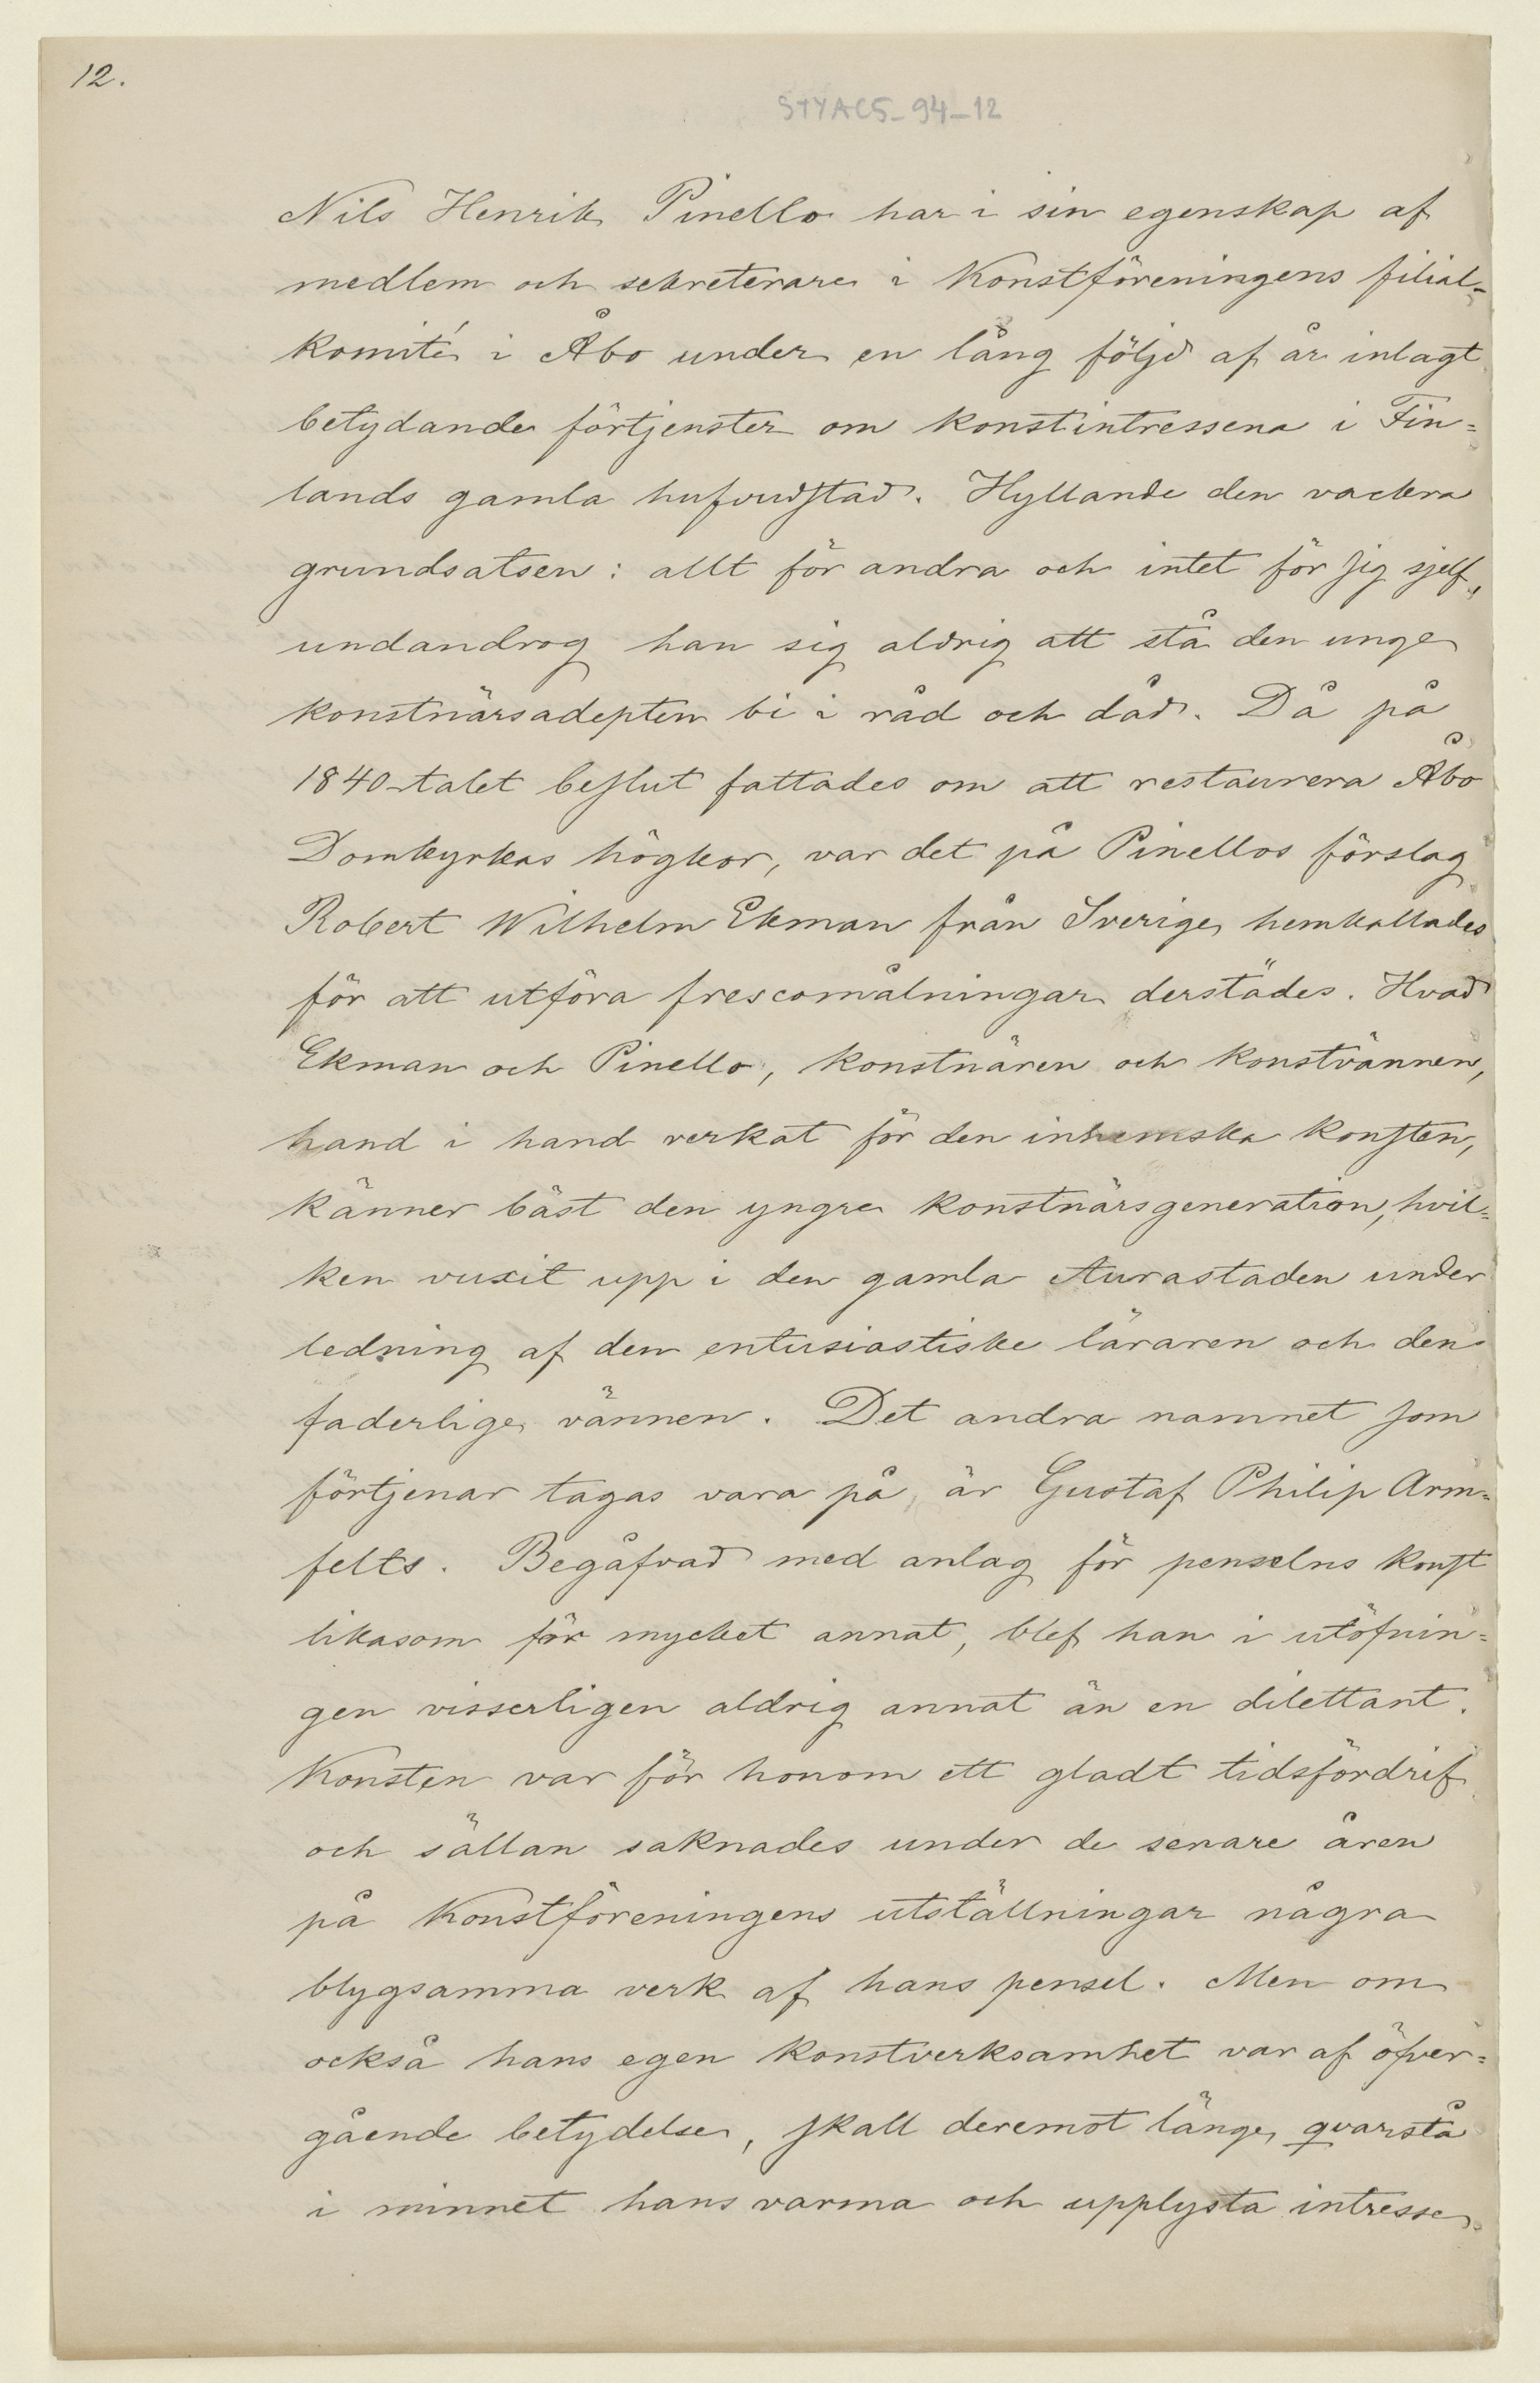 12.
STYAC5_94_12
Nils Henrik Pinello har i sin egenskap af
medlem och sekreterare i Konstföreningens filial-
komité i Åbo under en lång följd af år inlagt
betydande förtjenster om konstintressena i Fin-
lands gamla hufvudstad. Hyllande den vackra
grundsatsen: allt för andra och intet för sig sjelf,
undandrog han sig aldrig att stå den unge
konstnärsadepten bi i råd och dåd. Då på
1840-talet beslut fattades om att restaurera Åbo
Domkyrkas högkor, var det på Pinellos förslag
Robert Wilhelm Ekman från Sverige hemkallades
för att utföra frescomålningar derstädes. Hvad
Ekman och Pinello, konstnären och konstvännen,
hand i hand verkat för den inhemska konsten,
känner bäst den yngre konstnärsgeneration, hvil-
ken vuxit upp i den gamla Aurastaden under
ledning af den entusiastiske läraren och den
faderlige vännen. Det andra namnet som
förtjenar tagas vara på, är Gustaf Philip Arm-
felts. Begåfvad med anlag för penselns konst
likasom för mycket annat, blef han i utöfnin-
gen visserligen aldrig annat än en dilettant.
Konsten var för honom ett gladt tidsfördrif
och sällan saknades under de senare åren
på Konstföreningens utställningar några
blygsamma verk af hans pensel. Men om
också hans egen konstverksamhet var af öfver-
gående betydelse, skall deremot länge qvarstå
i minnet hans varma och upplysta intresse